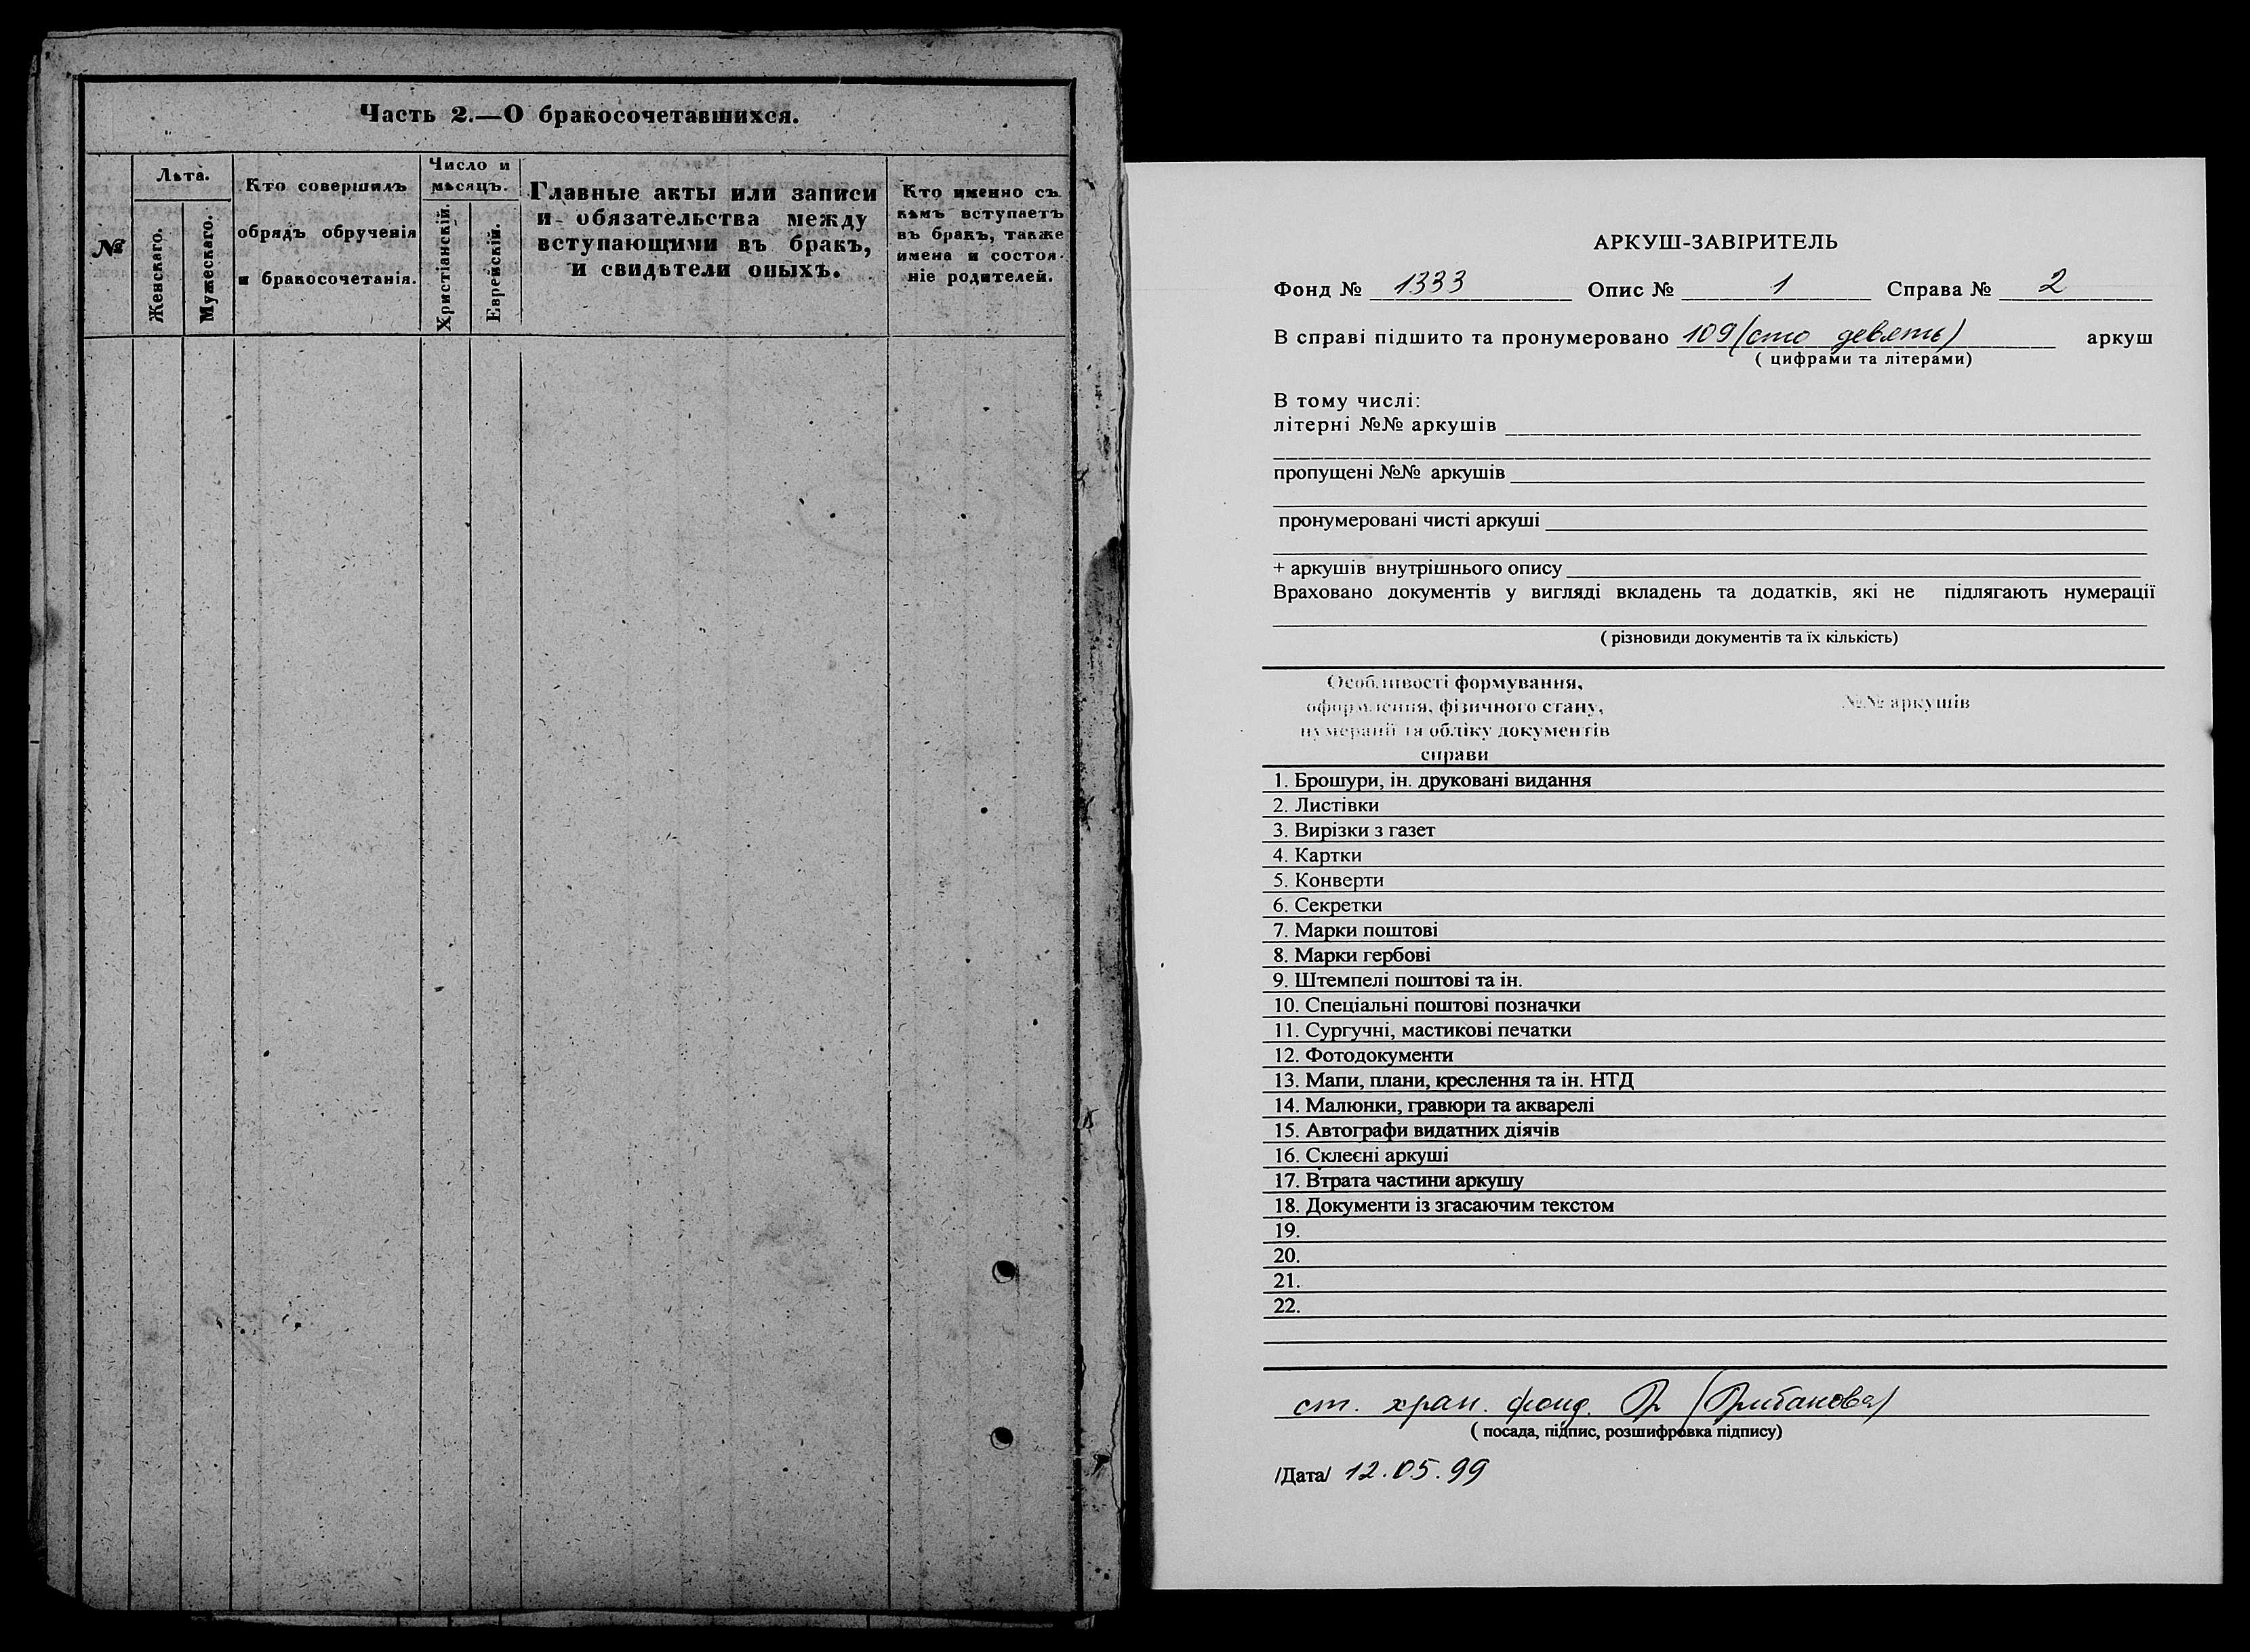 Часть 2.—О бракосочетавшихся.
№
Лѣта.
Женскаго.
Мужескаго.
Кто совершилъ
обрядъ обрученія
и бракосочетанія.
Число и
мѣсяцъ.
Христіанскій.
Еврейскій.
Главные акты или записи
и обязательства между
вступающими въ бракъ,
и свидѣтели оныхъ.
Кто именно съ
кѣмъ вступаетъ
въ бракъ, также
имена и состоя-
ніе родителей.
АРКУШ-ЗАВІРИТЕЛЬ
Фонд № 1333 Опис № 1 Справа № 2
В справі підшито та пронумеровано 109 (сто девять) аркуш
( цифрами та літерами)
В тому числі:
літерні №№ аркушів
пропущені №№ аркушів
пронумеровані чисті аркуші
+ аркушів внутрішнього опису
Враховано документів у вигляді вкладень та додатків, які не підлягають нумерації
( різновиди документів та їх кількість)
Особливості формування,
оформлення, фізичного стану,
нумерації та обліку документів
справи
№№ аркушів
1. Брошури, ін. друковані видання
2. Листівки
3. Вирізки з газет
4. Картки
5. Конверти
6. Секретки
7. Марки поштові
8. Марки гербові
9. Штемпелі поштові та ін.
10. Спеціальні поштові позначки
11. Сургучні, мастикові печатки
12. Фотодокументи
13. Мапи, плани, креслення та ін. НТД
14. Малюнки, гравюри та акварелі
15. Автографи видатних діячів
16. Склеєні аркуші
17. Втрата частини аркушу
18. Документи із згасаючим текстом
19.
20.
21.
22.
ст. хран. фонд.
( посада, підпис, розшифровка підпису)
/Дата/ 12.05.99